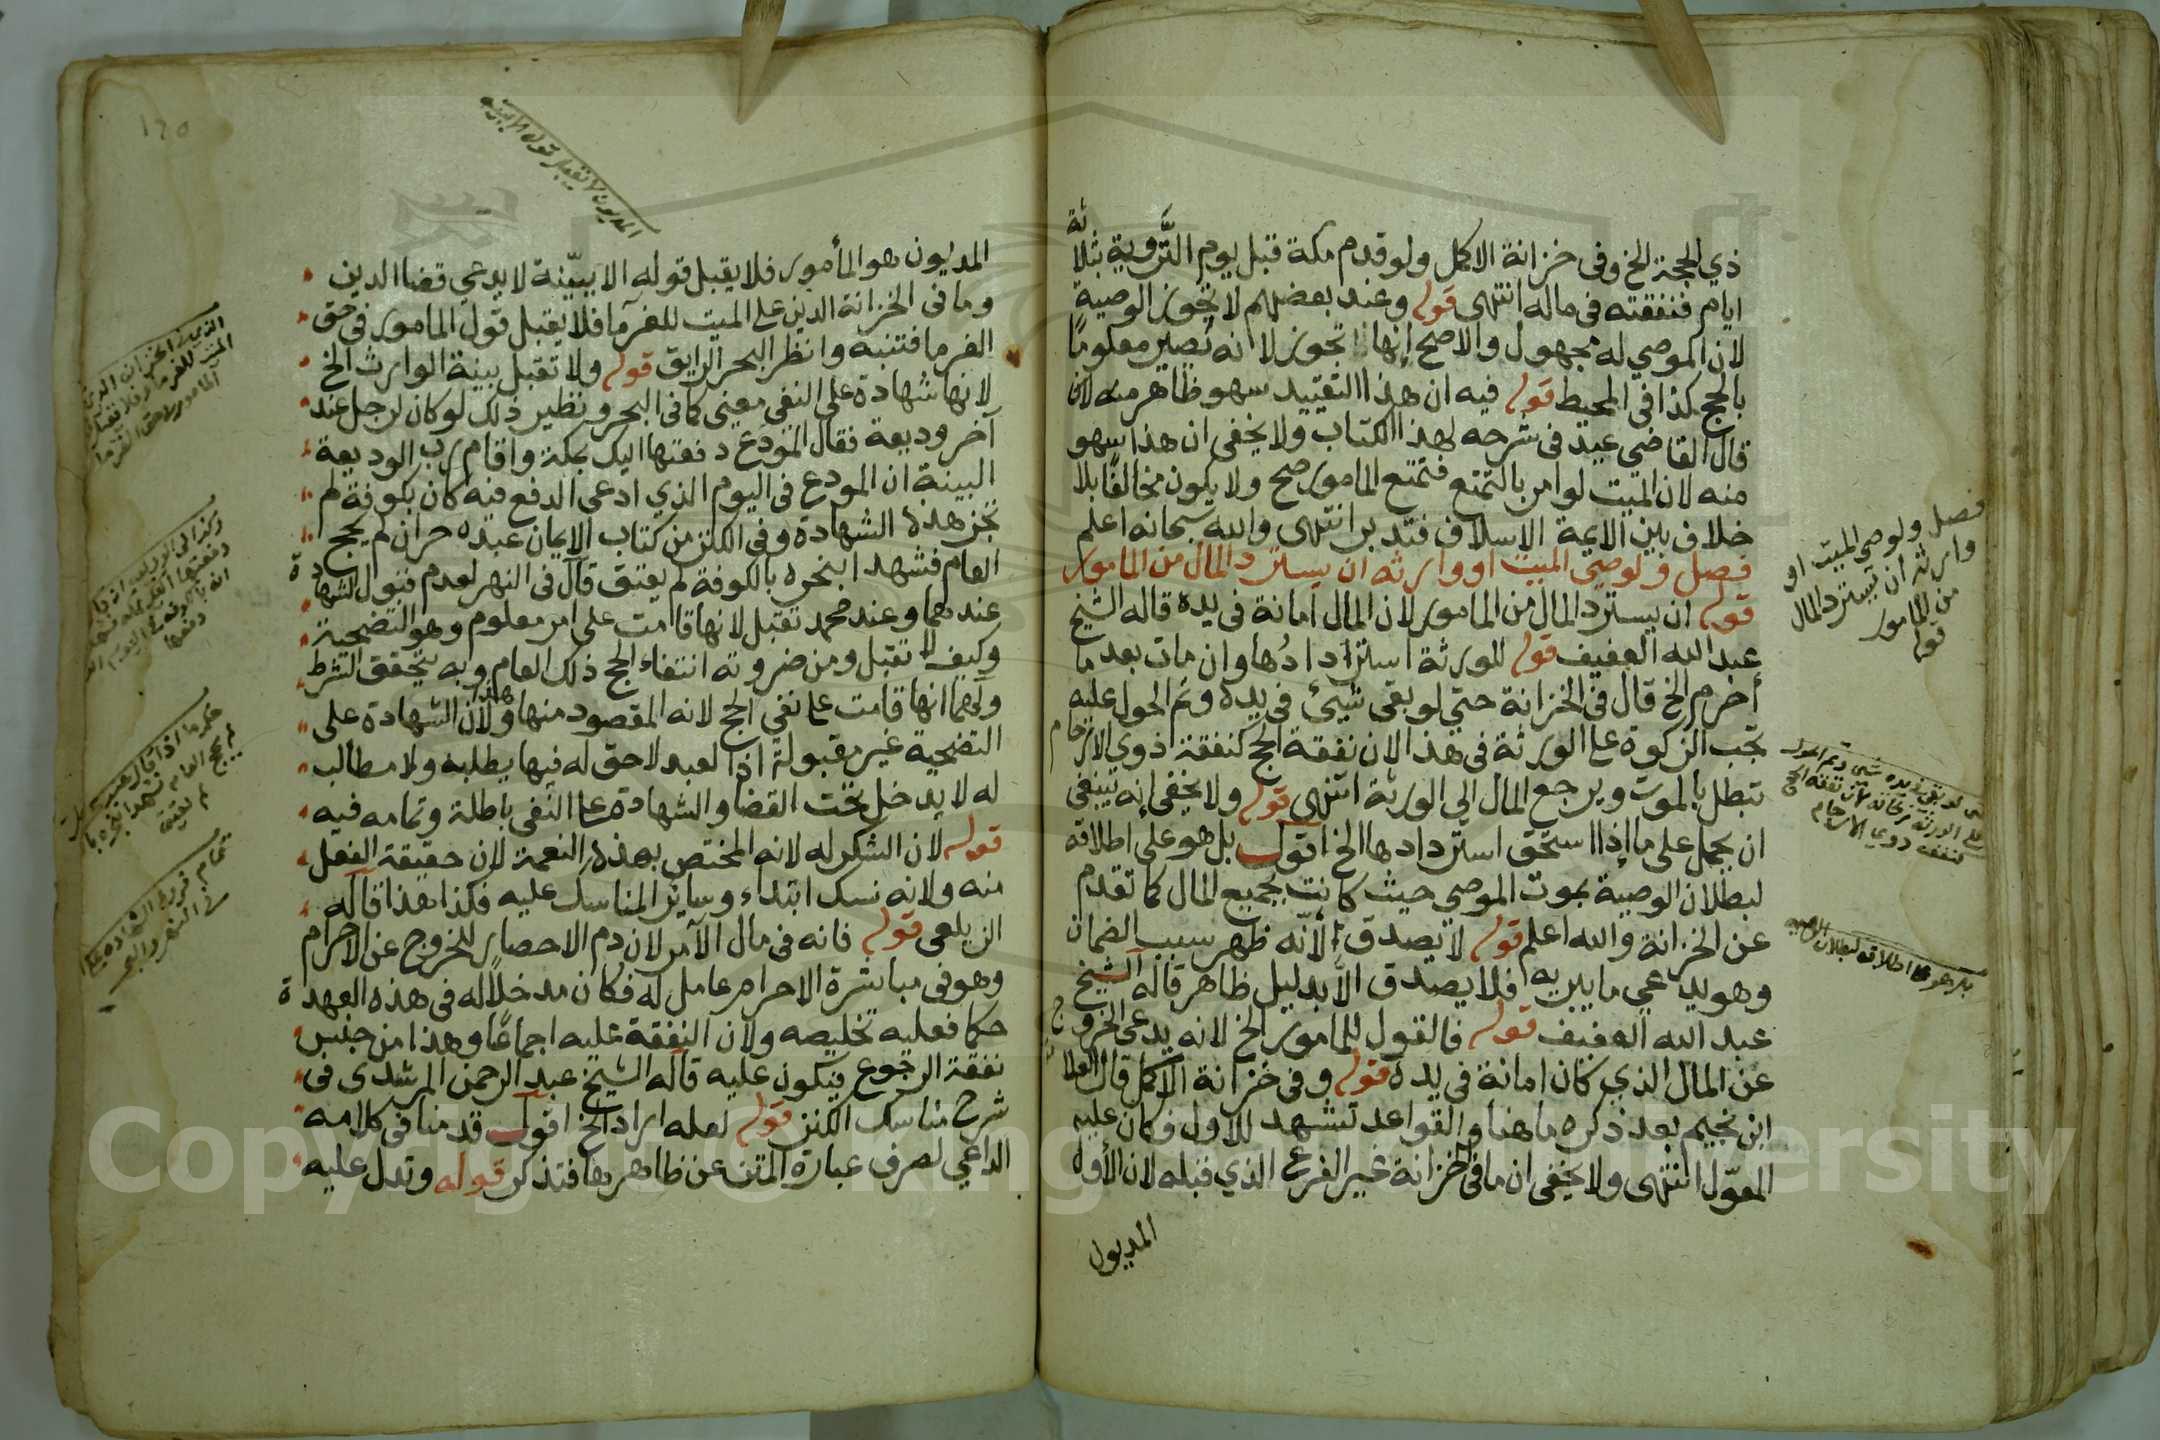 ذي الحجة الخ وفى خزانة الاكمل ولو قدم مكة قبل يوم التَّروية بثلاثة
ايام فنفقته فى ماله انتهى قوله وعند بعضهم لا تجوز الوصية
لان الموصي له مجهول والاصح انها تجوز لانه يصير معلومًا
بالحج كذا فى المحيط قوله فيه ان هذا التقييد سهو ظاهر منه لان
قال القاضي عيد فى شرحه لهذا الكتاب ولا يخفى ان هذا سهو
منه لان الميت لو امر بالتمتع فتمتع المامور صح ولا يكون مخالفًا بلا
خلاف بين الايمة الاسلاف فتدبر انتهى والله سبحانه اعلم
فصل ولوصي الميت او وارثه ان يسترد المال من المامور
قوله ان يسترد المال من المامور لان المال امانة فى يده قاله الشيخ
عبد الله العفيف قوله للورثة استردادُها وان مات بعد ما
أحرم الخ قال فى الخزانة حتي لو بقى شيئ فى يده وتم الحول عليه
تجب الزكوة على الورثة فى هذا لان نفقة الحج كنفقة ذوي الارحام
تبطل بالموت ويرجع المال الي الورثة انتهى قوله ولا يخفى انه ينبغى
ان يحمل على ما اذا استحق استردادها الخ اقول بل هو على اطلاقه
لبطلان الوصية بموت الموصي حيث كانت بجميع المال كما تقدم
عن الخزانة والله اعلم قوله لا يصدق لأنّه ظهر سبب الضمان
وهو يدعي ما يبريه فلا يصدق الّا بدليل ظاهر قاله الشيخ
عبد الله العفيف قوله فالقول للمامور الخ لانه يدعى الخروج
عن المال الذي كان امانة فى يده قوله وفى خزانة الاكمل قال العلا
ابن نجيم بعد ذكره ما هنا والقواعد تشهد للاول فكان عليه
المعوّل انتهى ولا يخفى ان ما فى الخزانة غير الفرع الذي قبله لان الأول
المديون
فصل ولوصي الميت او
وارثه ان يسترد المال
من المامور
قوله
على الورثة
كنفقة ذوي الارحام
بل هو على اطلاقه لبطلان الوصية
١٢٥
المديون لا يقبل قوله الا ببينة
المديون هو المأمور فلا يقبل قوله الا ببيّنة لا يدعي قضا الدين
وما فى الخزانة الدين على الميت للغرما فلا يقبل قول المامور فى حق
الغرما فتنبه وانظر البحر الرايق قوله ولا تقبل بينة الوارث الخ
لانها شهادة على النفى معنى كما فى البحر ونظير ذلك لو كان لرجل عند
آخر وديعة فقال المودَع دفعتها اليك بمكة واقام رب الوديعة
البينة ان المودع فى اليوم الذي ادعى الدفع فيه كان بكوفة لم
تجز هذه الشهادة وفى الكنز من كتاب الايمان عبده حر ان لم يحج
العام فشهدا بنحره بالكوفة لم يعتق قال فى النهر لعدم قبول الشهادة
عندهما وعند محمد تقبل لانها قامت على امر معلوم وهو التضحية
وكيف لا تقبل ومن ضروته انتفاء الحج ذلك العام وبه يتحقق الشرط
ولهما انها قامت على نفي الحج لانه المقصود منها ولان الشهادة على
التضحية غير مقبولة اذ العبد لا حق له فيها يطلبه ولا مطالب
له لا يدخل تحت القضا والشهادة على النفى باطلة وتمامه فيه
قوله لان الشكر له لانه المختص بهذه النعمة لان حقيقة الفعل
منه ولانه نسك ابتداء وساير المناسك عليه فكذا هذا قاله
الزيلعى قوله فانه فى مال الآمر لان دم الاحصار للخروج عن الاحرام
وهو فى مباشرة الاحرام عامل له فكان مدخلاً له فى هذه العهدة
حكما فعليه تخليصه ولان النفقة عليه اجماعًا وهذا من جنس
نفقة الرجوع فيكون عليه قاله الشيخ عبد الرحمن المرشدى فى
شرح مناسك الكنز قوله لعله اراد الخ اقول قدمنا فى كلامه
الداعي لصرف عبارة المتن عن ظاهرها فتذكر قوله وتدل عليه
Copyright © King Saud University